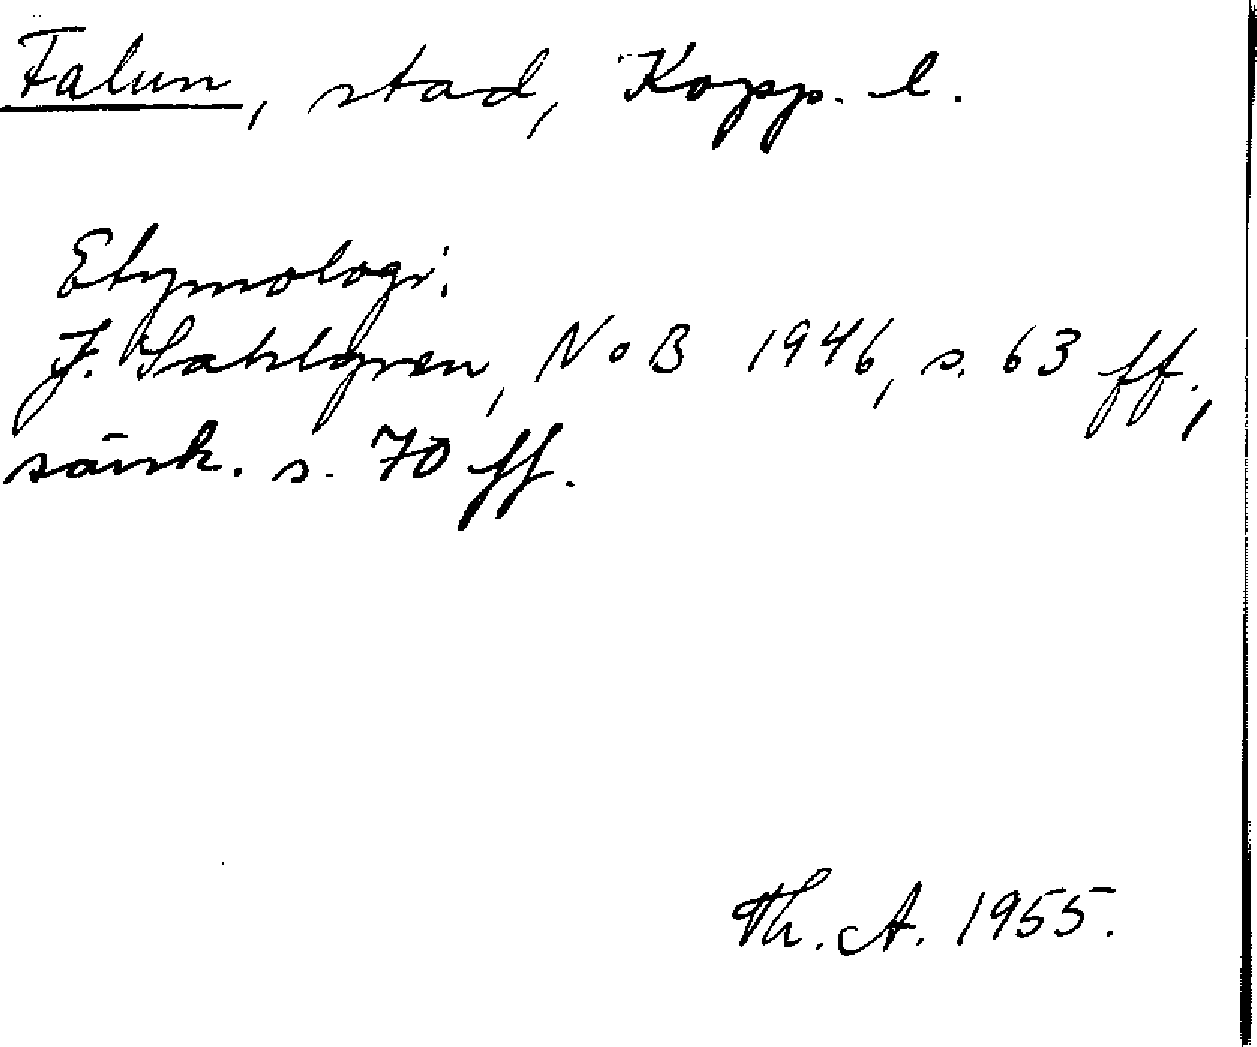 Falun, stad, Kopp. l.
Etymologi:
J. Sahlgren, NoB 1946, s. 63 ff.,
särsk. s. 70 ff.
Th. A. 1955.